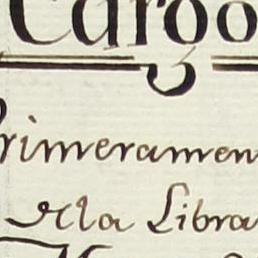 Cargo
Primeramen
de la Libra